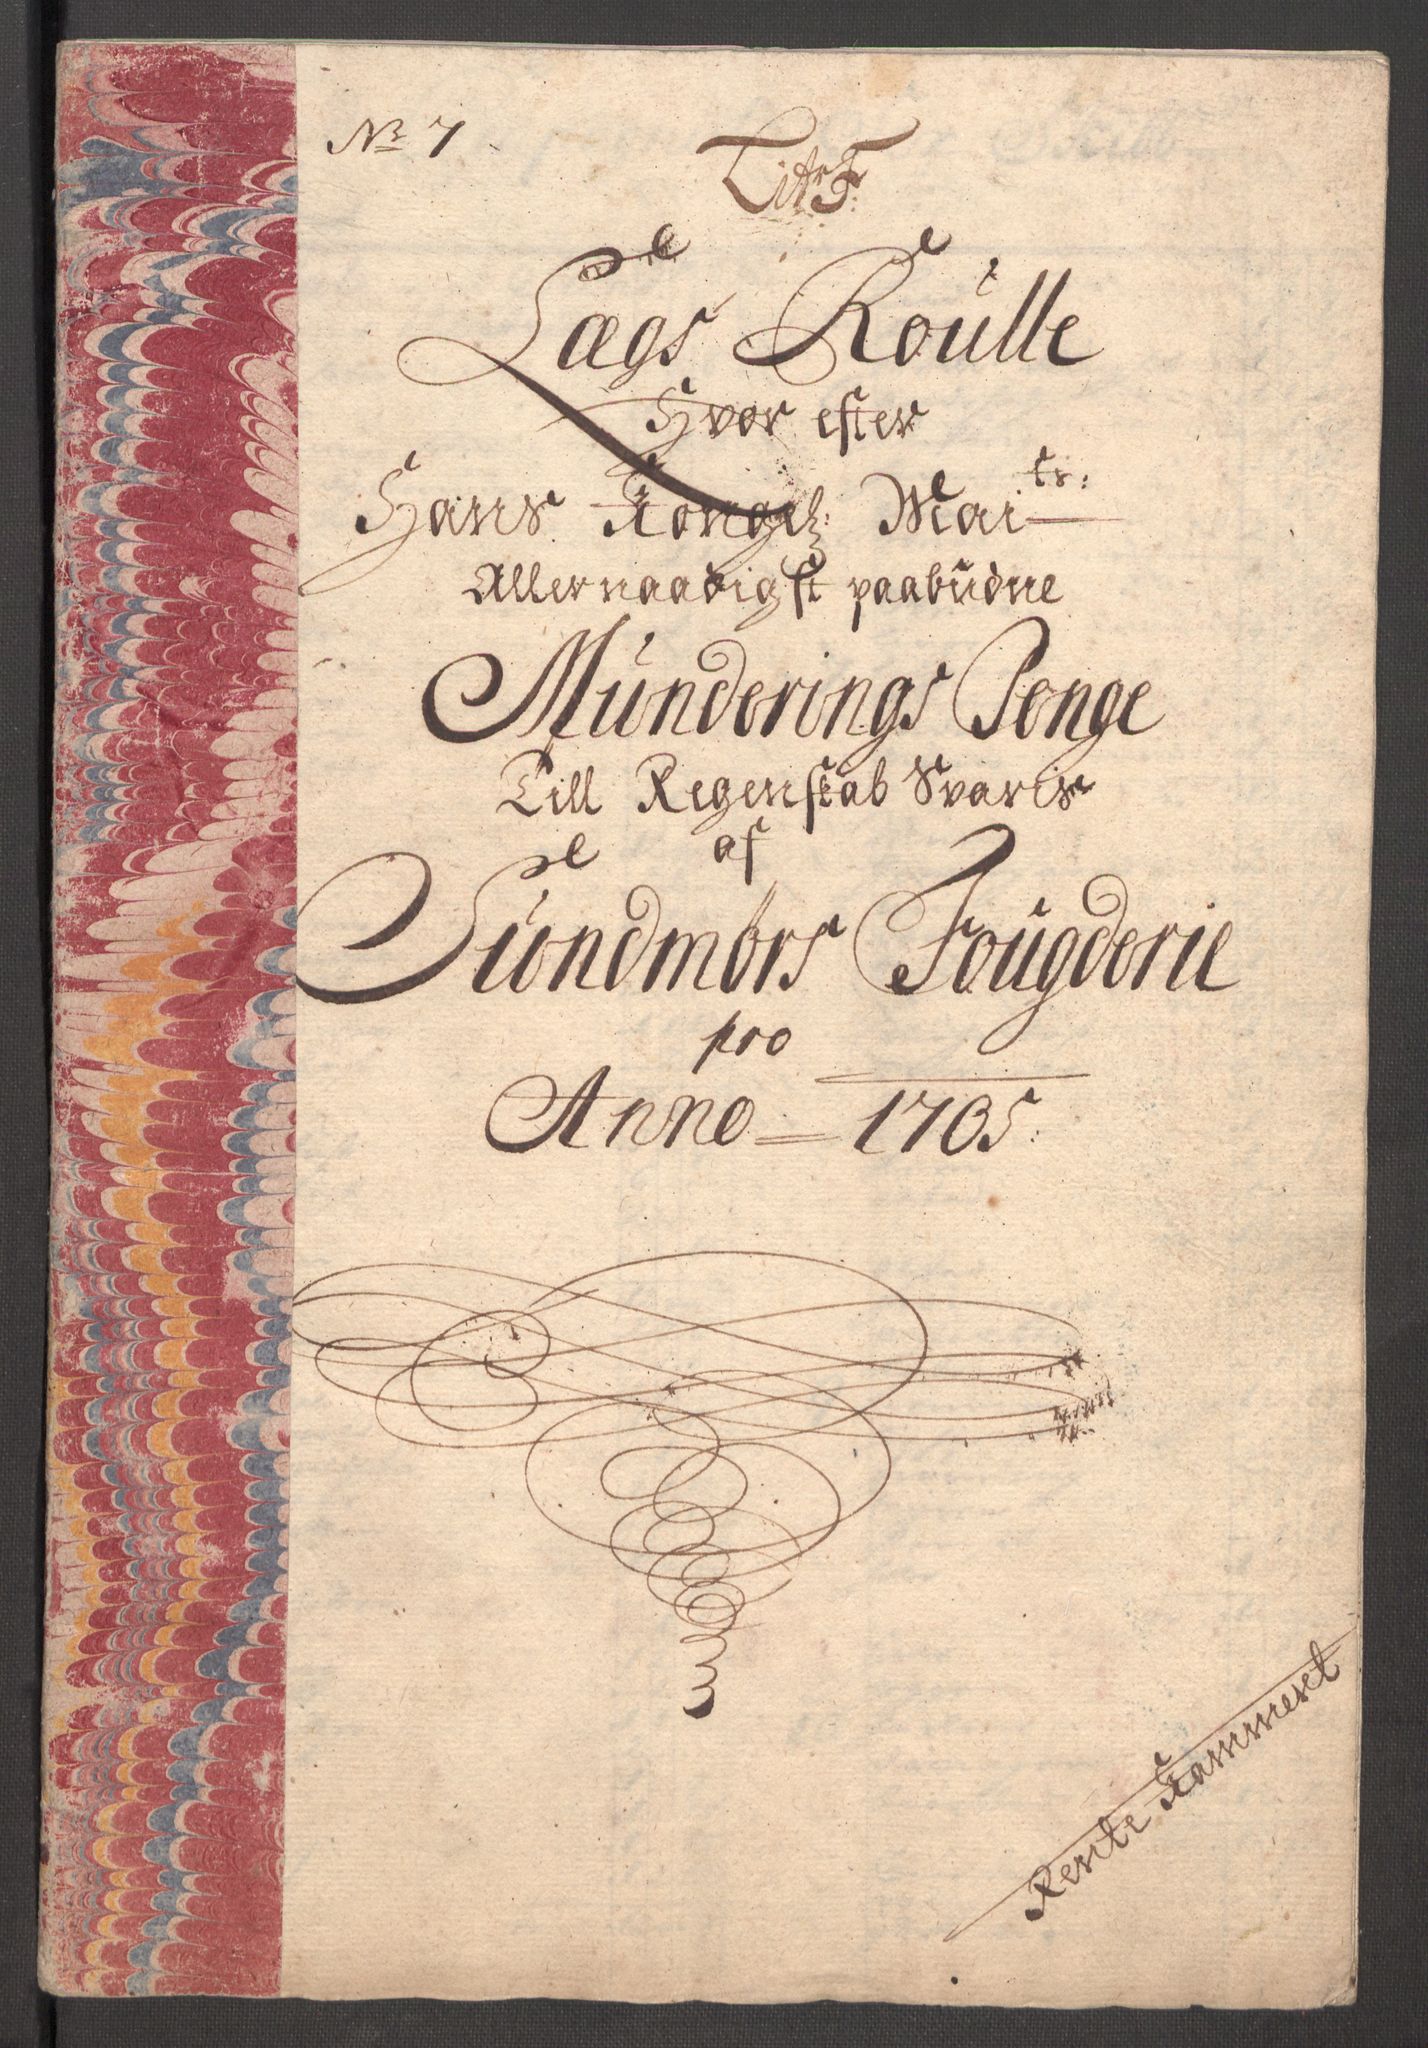 No 7
Litr F:
Lægs Roülle
Hvor efter
Hans Kongel: Maits:
Allernaadigst paabüdne
Münderings Penge
Till Regenskab Svaris
af
Sündmörs Fougderie
pro
Anno 1705:
Rente Kammeret